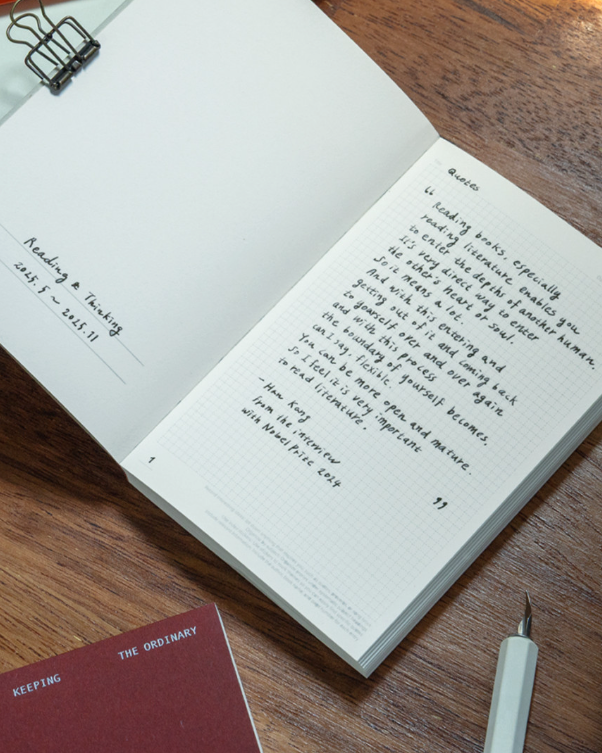 Reading & Thinking
2025.5 ~ 2025.11
Quotes
“
Reading books, especially
reading literature enables you
to enter the depths of another human.
It's very direct way to enter
the other's heart or soul.
So it means a lot.
And with this entering and
getting out of it and coming back
to yourself over and over again
and with this process
the boundary of yourself becomes,
can I say, flexible.
You can be more open and mature.
So I feel it is very important
to read literature.
- Han Kang
from the interview
with Nobel Prize 2024
”
1
KEEPING
THE ORDINARY